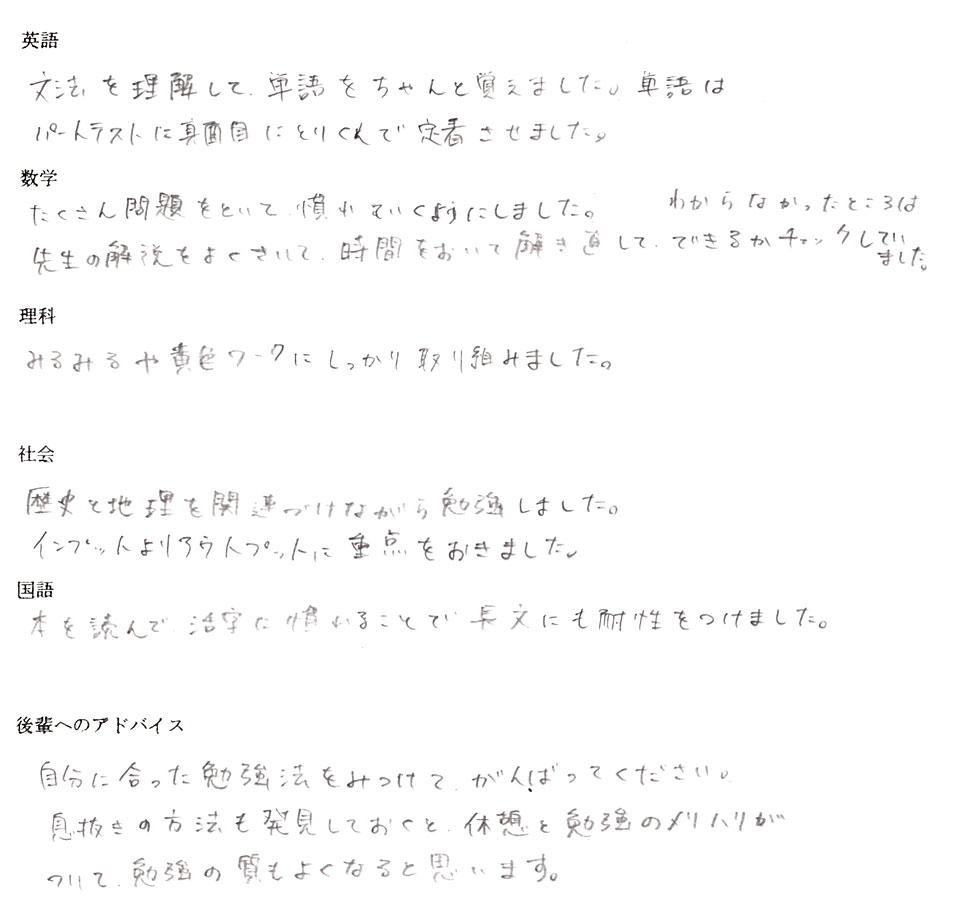 英語
文法を理解して、単語をちゃんと覚えました。単語は
パートテストに真面目にとりくんで定着させました。
数学
たくさん問題をといて、慣れていくようにしました。 わからなかったところは
先生の解説をよくきいて、時間をおいて解き直して、できるかチェックしてい
ました。
理科
みるみるや黄色ワークにしっかり取り組みました。
社会
歴史と地理を関連づけながら勉強しました。
インプットよりアウトプットに重点をおきました。
国語
本を読んで、活字に慣れることで長文にも耐性をつけました。
後輩へのアドバイス
自分に合った勉強法をみつけて、がんばってください。
息抜きの方法も発見しておくと、休憩と勉強のメリハリが
ついて、勉強の質もよくなると思います。